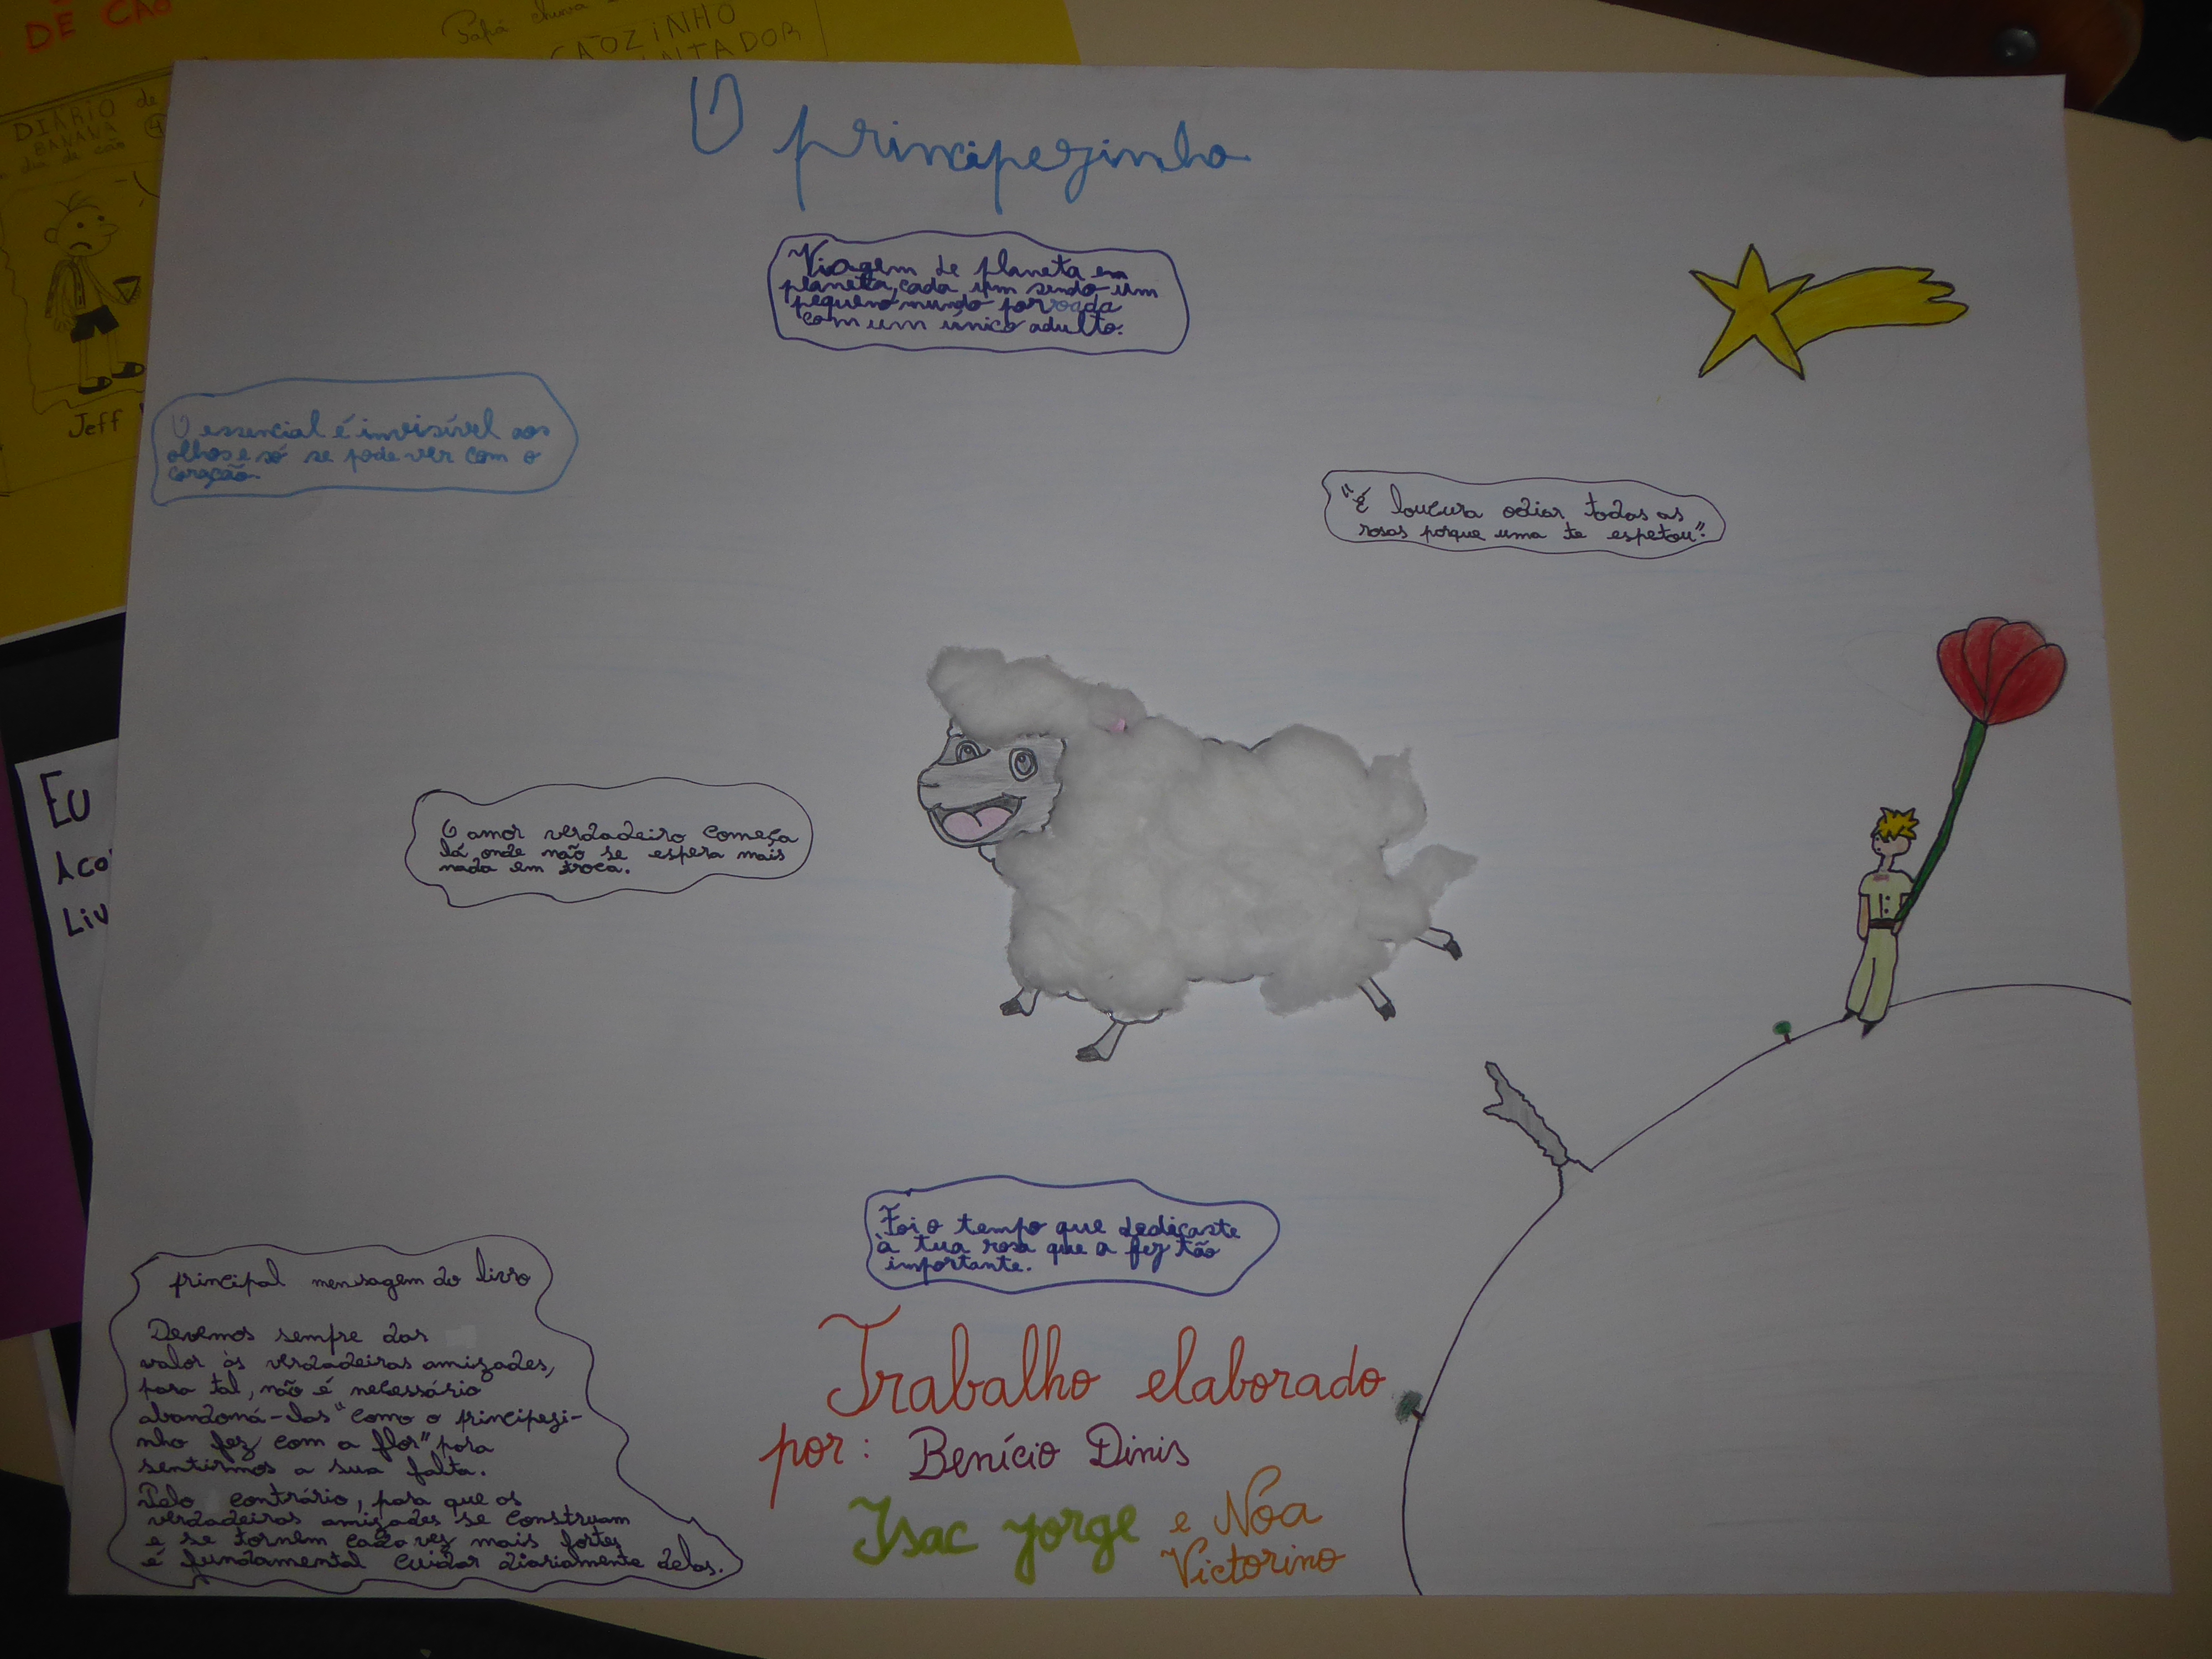 DE CÃO
Papá chuva
CÃOZINHO
DIÁRIO de
BANANA 4
dia de cão
Jeff
O principezinho
Viagem de planeta em
planeta, cada um sendo um
pequeno mundo porvoada
com um único adulto.
O essencial é invisível aos
olhos e só se pode ver com o
coração.
"É loucura odiar todas as
rosas porque uma te espetou".
O amor verdadeiro começa
lá onde não se espera mais
nada em troca.
Eu
Liv
Foi o tempo que dedicaste
à tua rosa que a fez tão
importante.
principal mensagem do livro
Devemos sempre dar
valor às verdadeiras amizades,
para tal, não é necessário
abandoná-las "como o principezi-
nho fez com a flor" para
sentirmos a sua falta.
Pelo contrário, para que as
verdadeiras amizades se construam
e se tornem cada vez mais fortes
é fundamental cuidar diariamente delas.
Trabalho elaborado
por: Benício Dinis
Isac Jorge e Nóa
Victorino